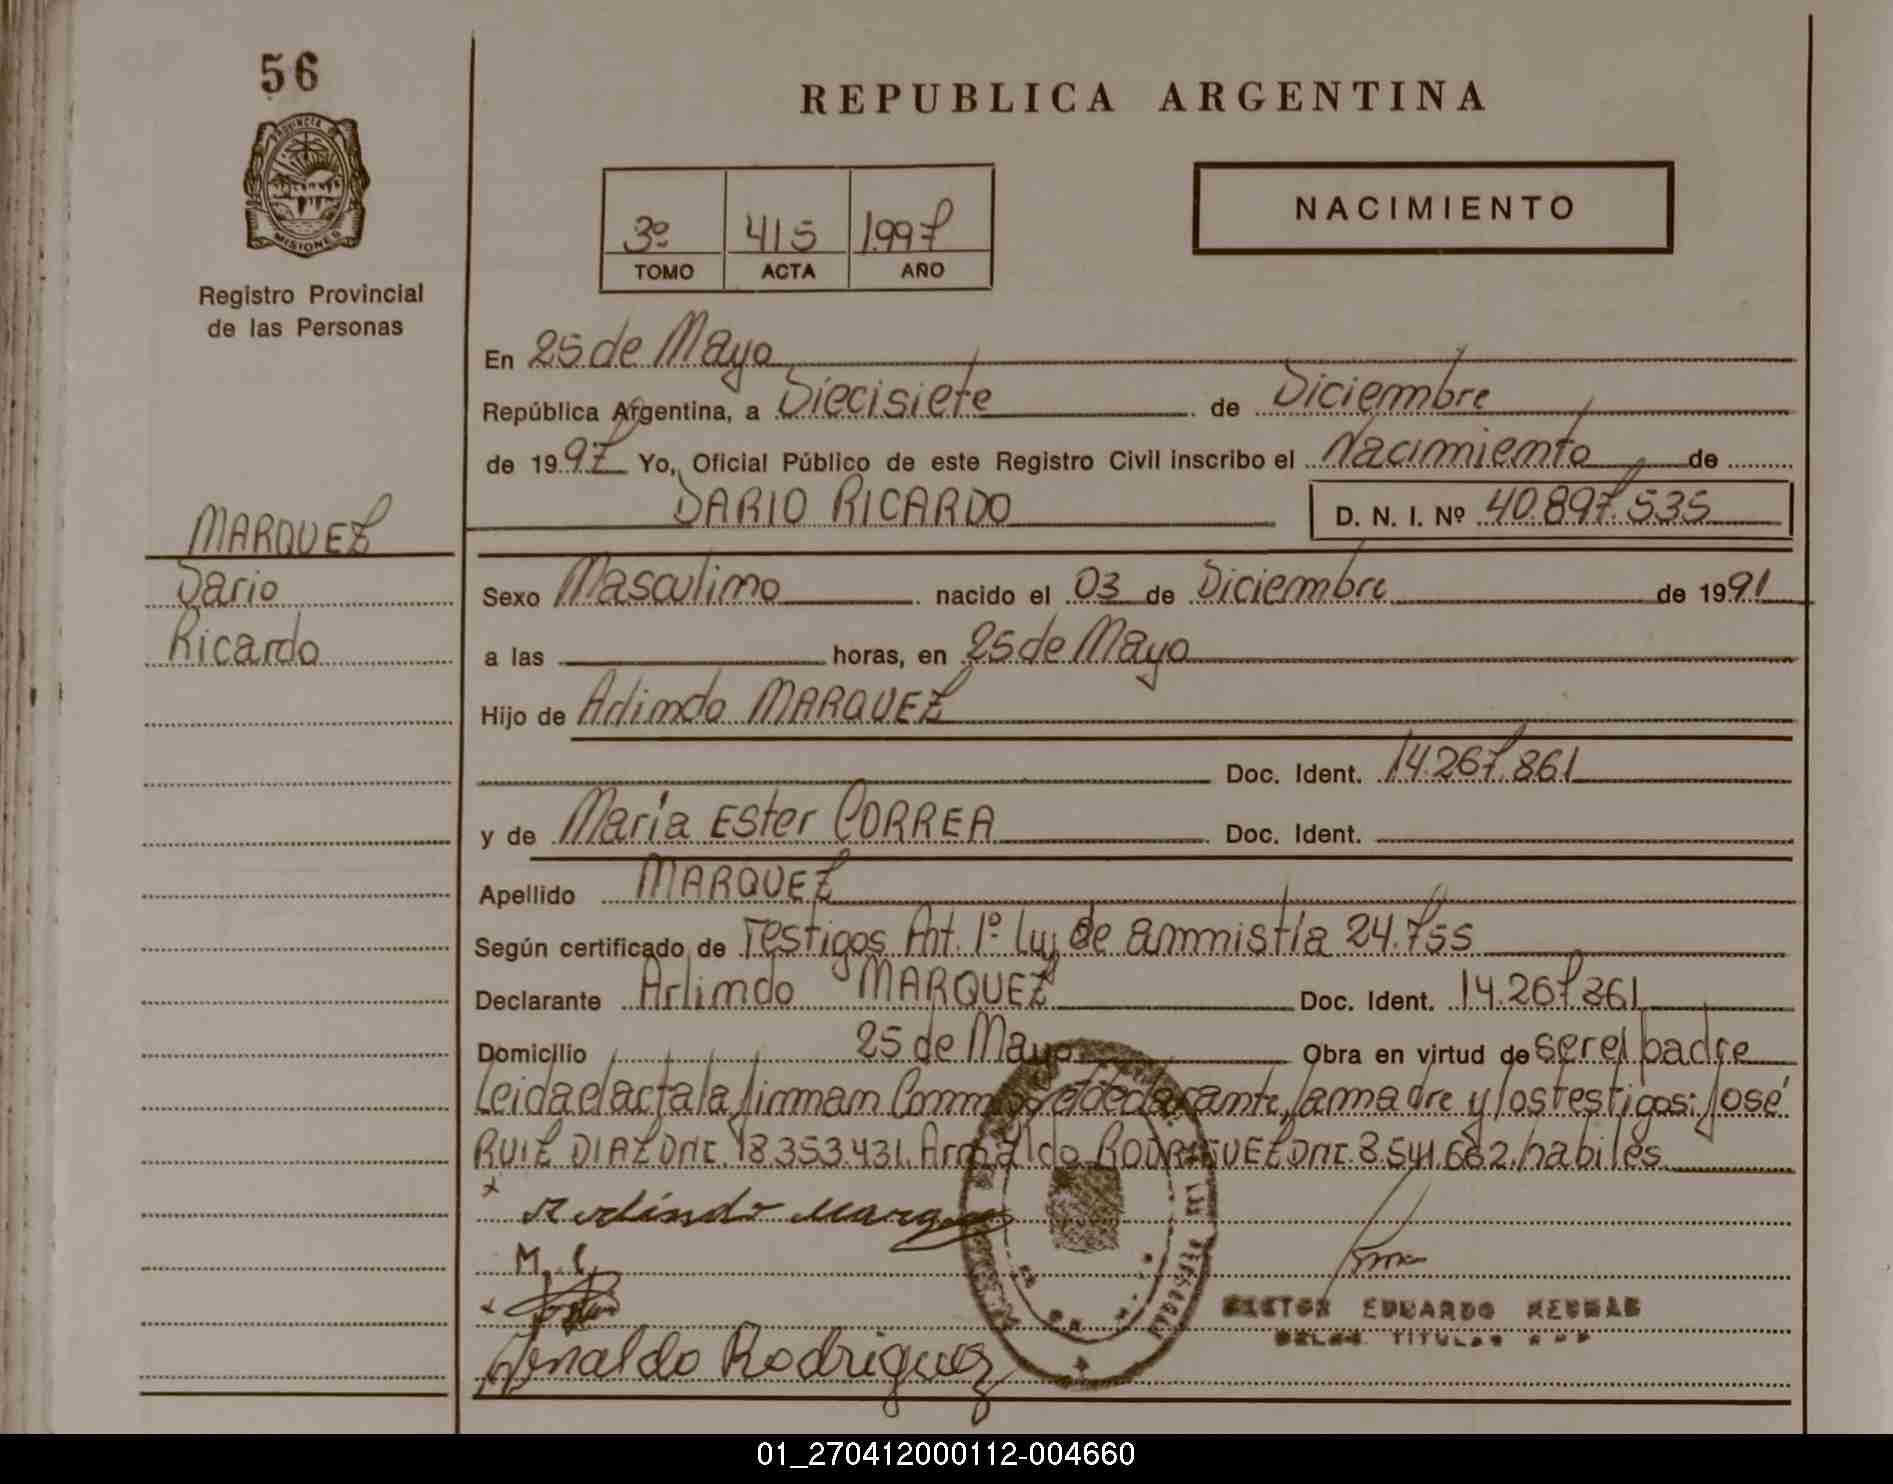 56
REPUBLICA ARGENTINA
PROVINCIA DE
MISIONES
Registro Provincial
de las Personas
3º 415 1997
TOMO ACTA AÑO
NACIMIENTO
En 25 de Mayo
República Argentina, a Diecisiete de Diciembre
de 1997 Yo, Oficial Público de este Registro Civil inscribo el Nacimiento de
DARIO RICARDO D. N. I. Nº 40.897.535
MARQUEZ
Dario
Ricardo
Sexo Masculino nacido el 03 de Diciembre de 1991
a las horas, en 25 de Mayo
Hijo de Arlindo MARQUEZ
Doc. Ident. 14.267.861
y de María Ester CORREA Doc. Ident.
Apellido MARQUEZ
Según certificado de Testigos Art. 1º Ley de amnistía 24.755
Declarante Arlindo MARQUEZ Doc. Ident. 14.267.861
Domicilio 25 de Mayo Obra en virtud de ser el padre
Leida el acta la firman Conmigo el declarante, la madre y los testigos: José
RUIZ DIAZ DNI. 18.353.431. Arnaldo RODRIGUEZ DNI. 8.541.662. habiles
Arlindo Marquez
M. C.
Arnaldo Rodriguez
EDUARDO
TITULAR
01_270412000112-004660